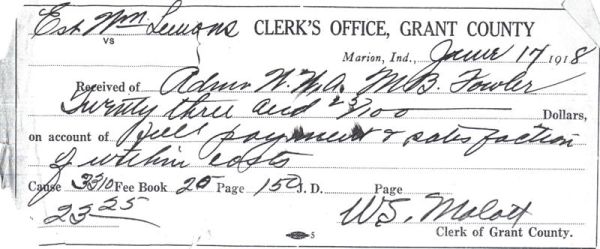 Est Wm Lemons CLERK'S OFFICE, GRANT COUNTY
vs
Marion, Ind., June 17 1918
Received of Admr W.W.A. M.B. Fowler
Twenty three and 25/100 Dollars,
on account of full payment & satisfaction
of within costs
Cause 3310 Fee Book 25 Page 150 J. D. Page
23 25 W.S. Malott
Clerk of Grant County.
5